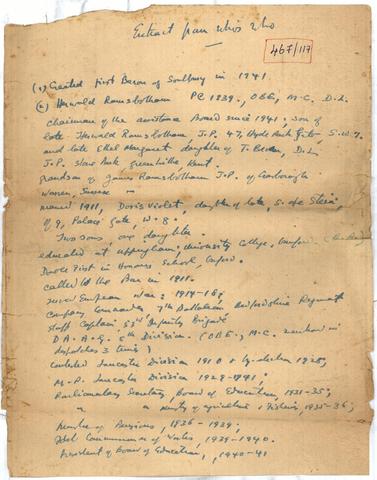 Extract from who's who
467/117
(1) Created first Baron of Soulbury in 1941.
(2) Herwald Ramsbotham PC 1939., OBE, M.C. D.L.
Chairman of the assistance Board since 1941, son of
late Herwald Ramsbotham J.P. 47, Hyde Park Gate, S.W.7.
and late Ethel Margaret daughter of T. Bevan, D.L.
J.P. Stone Park Greenhithe Kent.
grandson of James Ramsbotham J.P. of Crowborough
Warren, Sussex
married 1911, Doris Violet, daughter of late, S. de Stein
of 9, Palace Gate, W. 8.
Two sons, one daughter.
educated at uppingham; university College, Oxford.
Double First in Honours School, Oxford.
called to the Bar in 1911.
served European War: 1914-18;
Company Commander 7th Battalion Bedfordshire Regiment
staff Captain 53rd Infantry Brigade
D.A.A.G. 5th Division. (OBE., M.C. mentioned in
despatches 3 times)
contested Lancaster Division by-election 1928,
M.P. Lancaster Division 1929-1941;
Parliamentary Secretary Board of Education, 1931-35;
" " Ministry of agriculture & Fisheries, 1935-36;
Minister of Pensions, 1936-1939;
First Commissioner of Works, 1939-1940.
President of Board of Education, 1940-41